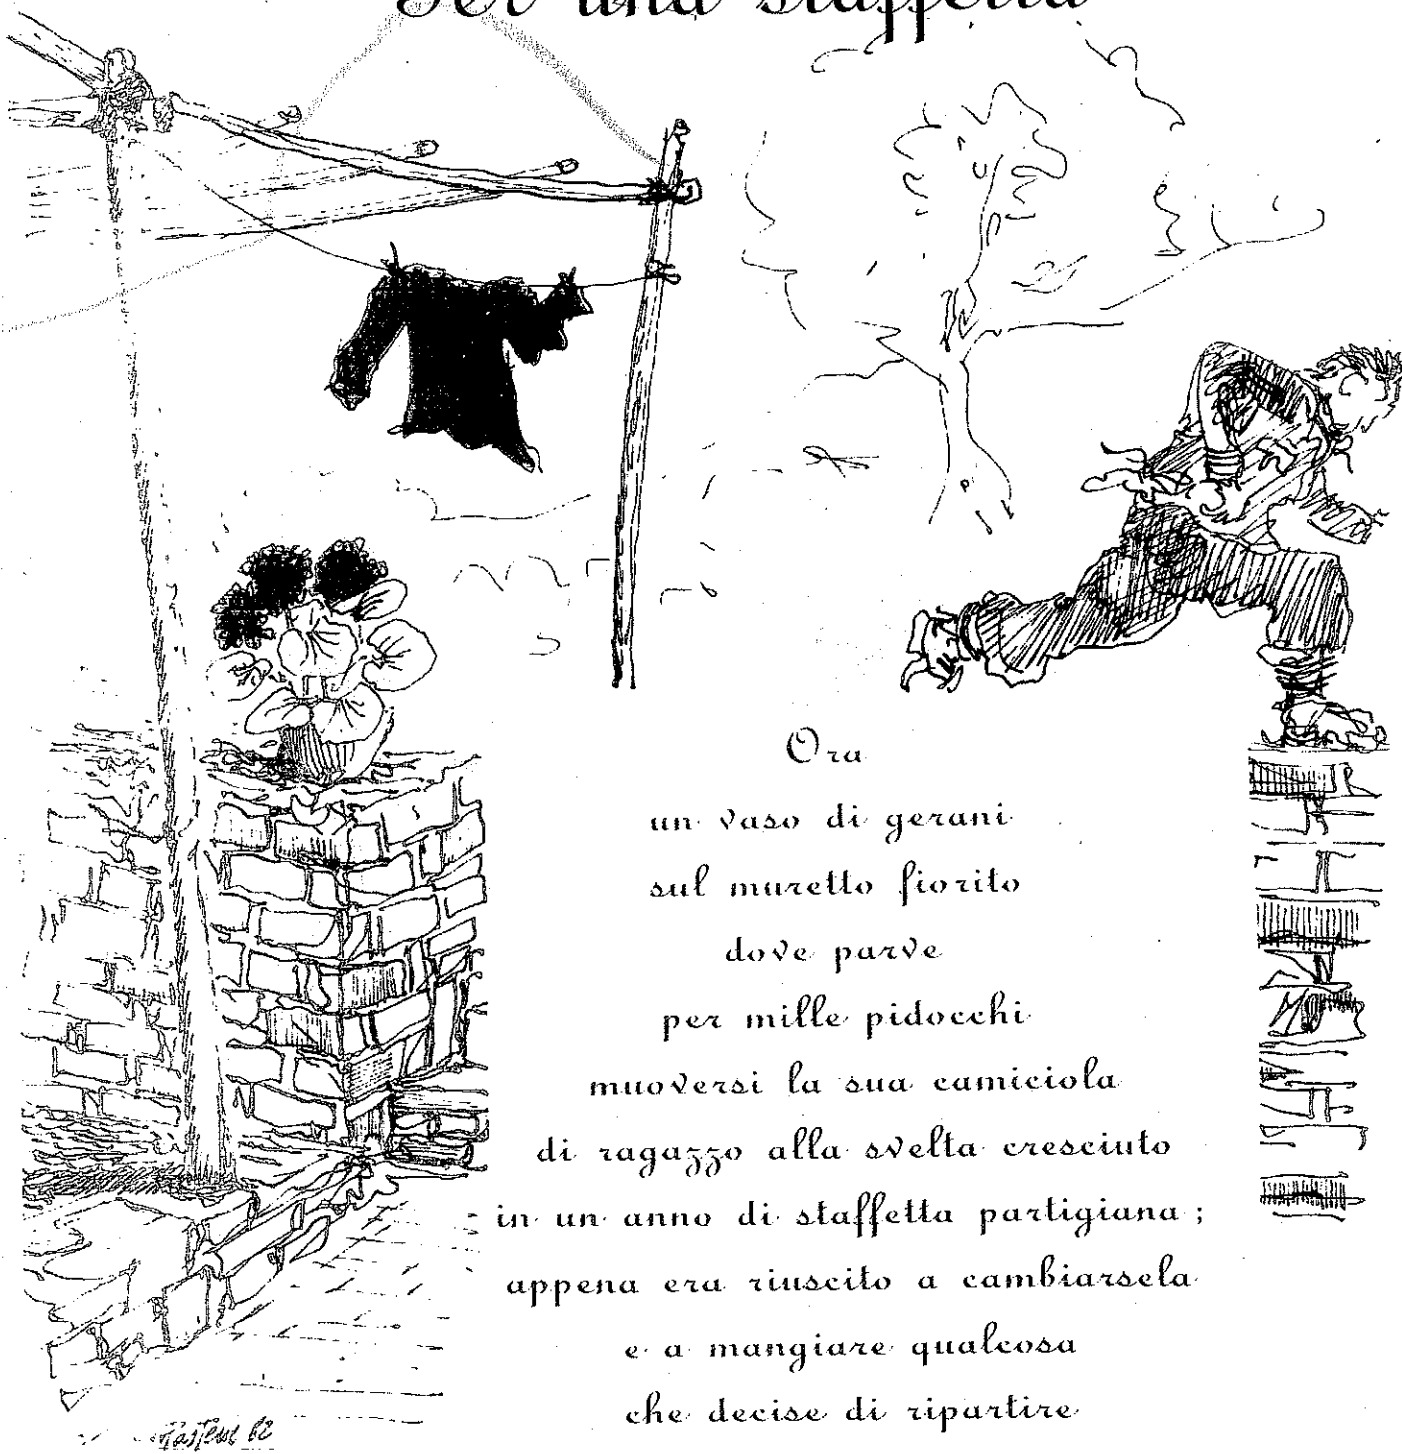 Per una staffetta
Ora
un vaso di gerani
sul muretto fiorito
dove parve
per mille pidocchi
muoversi la sua camiciola
di ragazzo alla svelta cresciuto
in un anno di staffetta partigiana;
appena era riuscito a cambiarsela
e a mangiare qualcosa
che decise di ripartire
82